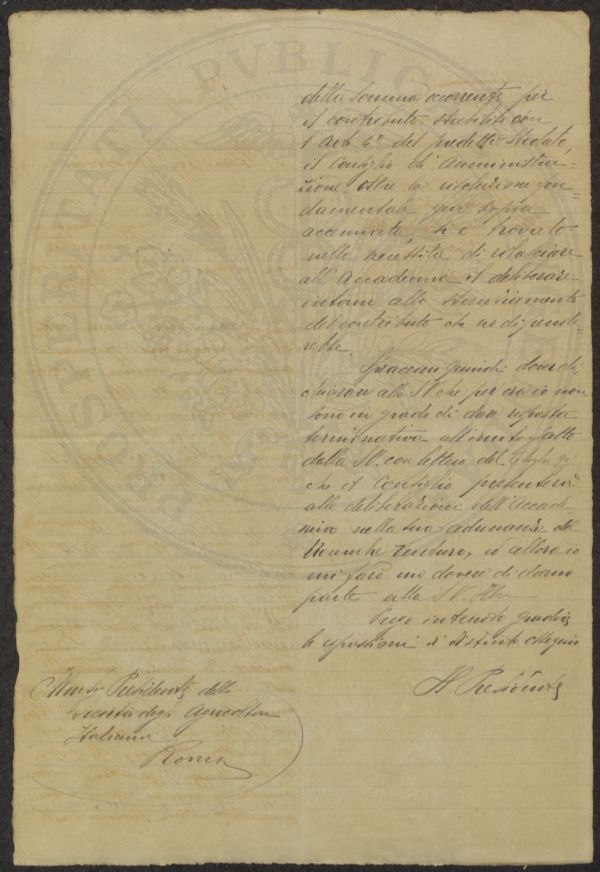 della somma occorrente per
il contributo stabilito con
l'Art 4° del predetto Statuto,
il Consiglio di Amministra=
zione oltre la risoluzione fon=
damentale più sopra
accennata si è trovato
nella necessità di rilasciare
all'Accademia il deliberare
intorno allo stanziamento
del contributo che ne dipende=
rebbe.
Spiacemi quindi dover di
chiarare alla SV. che per ora io non
sono in grado di dare risposta
terminativa all'invito fatto
dalla SV. con lettera del
che il Consiglio presenterà
alle deliberazioni dell'Accade
mia nella sua adunanza del
Novembre venturo, ed allora io
mi farò un dovere di darne
parte alla SV. Ill
Prego intanto gradire
le espressioni di distinto ossequio
Il Presidente
Presidente della
Società degli Agricoltori
Italiani
Roma
PROSPERITATI PUBLIC